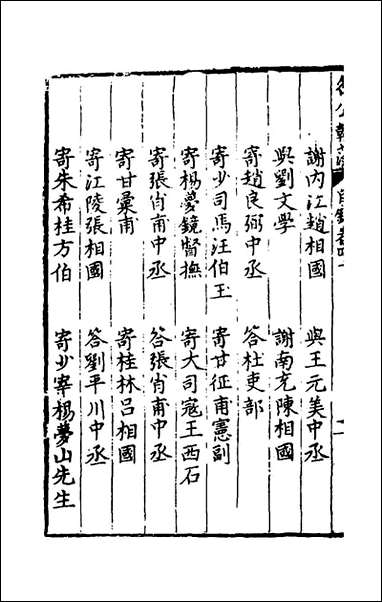 謝内江趙相國　與王元美中丞
與劉文學　謝南充陳相國
寄趙良弼中丞　答杜吏部
寄少司馬汪伯玉　寄甘征甫憲副
寄楊夢鏡督撫　寄大司寇王西石
寄張肖甫中丞　答張肖甫中丞
寄甘彙甫　寄桂林呂相國
寄江陵張相國　答劉平川中丞
寄朱希桂方伯　寄少宰楊夢山先生